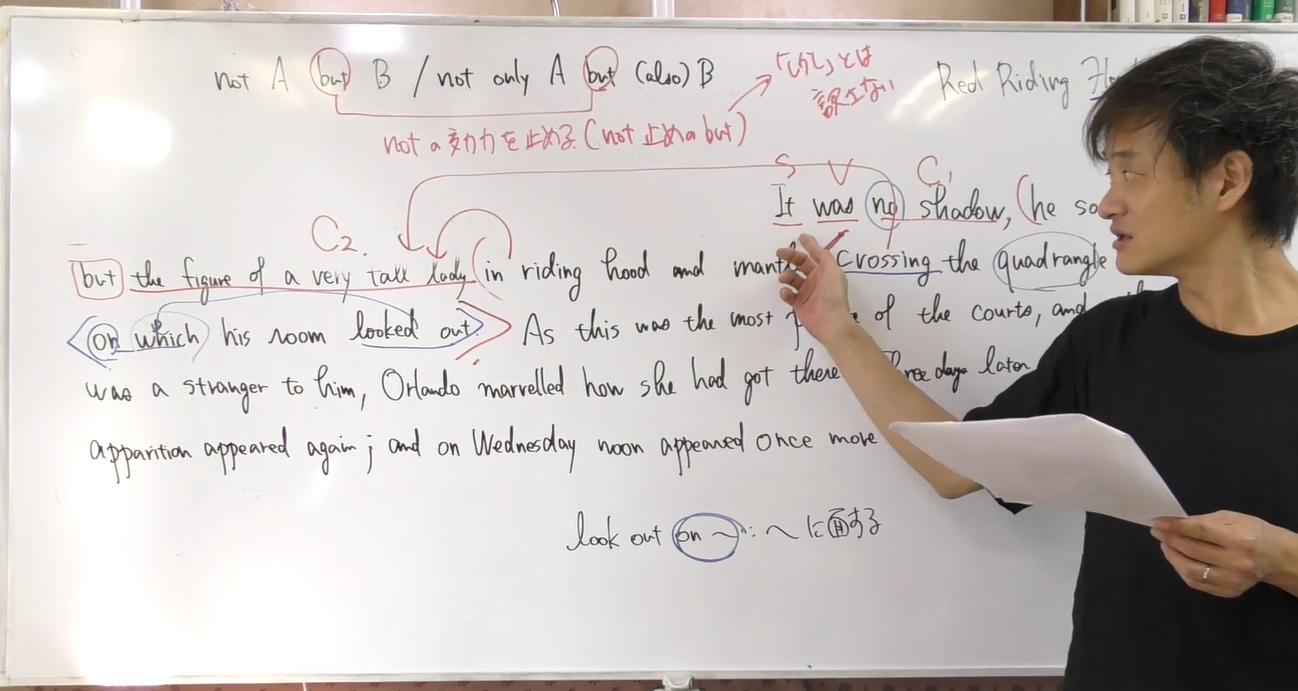 not A but B / not only A but (also) B
「しかし」とは
訳さない
Red Riding
notの効力を止める (not 止めの but)
S V C₁
It was no shadow, he
C₂.
but the figure of a very tall lady in riding hood and mantle crossing the quadrangle
on which his room looked out. As this was the most of the courts, and
was a stranger to him, Orlando marvelled how she had got there. Three days later
apparition appeared again; and on Wednesday noon appeared once more
look out on ～: ～に面する